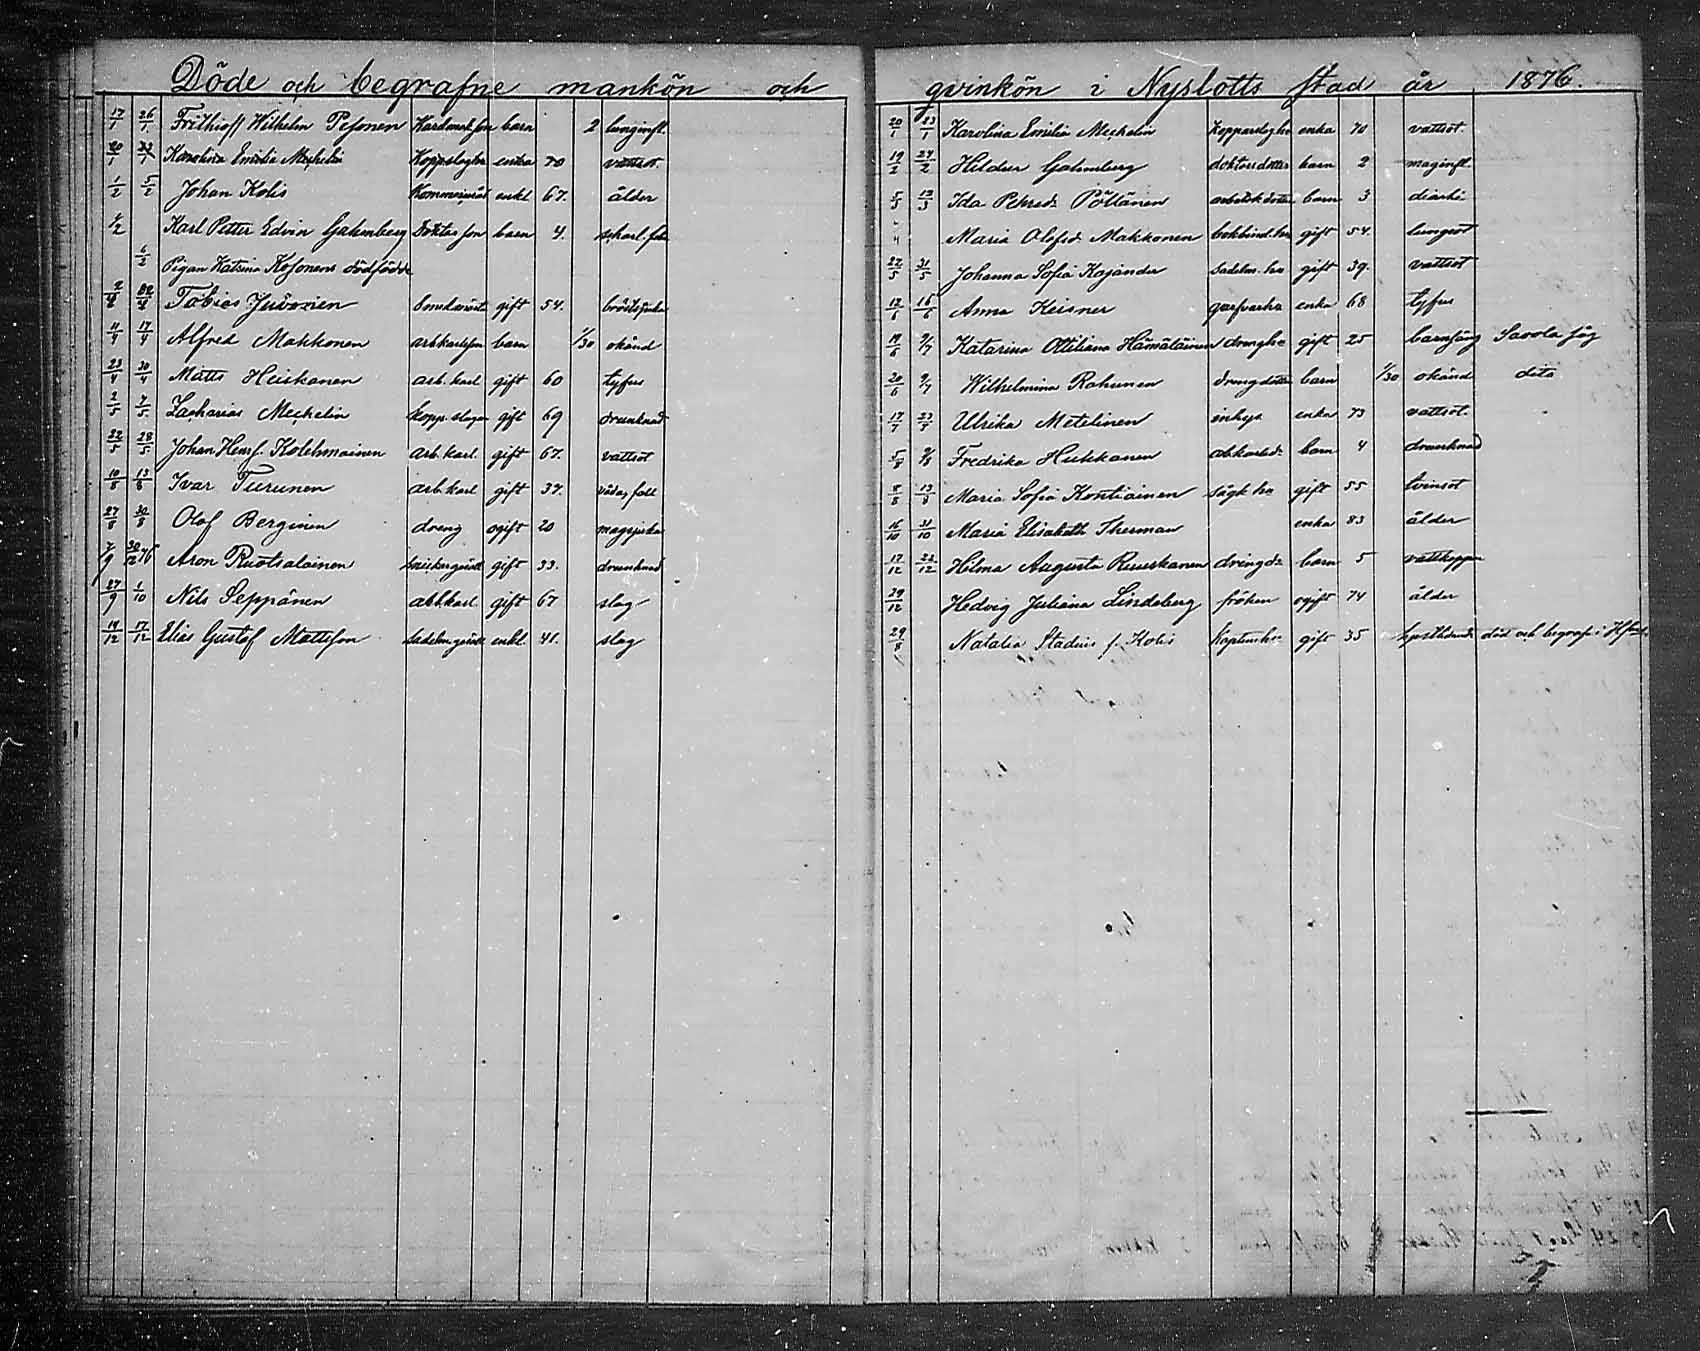 Döde och begrafne mankön och
17/1 26/1 Frithioff Wilhelm Pesonen barn 2 lunginfl.
20/1 23/1 Karolina Emilia Mechelin enka 70 vattsot.
1/2 5/2 Johan Kolis enkl 67. ålder
Karl Petter Edvin Gahmberg Doktor son barn 4. scharl. feb
6/2 Pigan Katrina Kosonens dödfödde
Tobias gift 54.
11/4 17/4 Alfred Makkonen arbkarlsson barn 1/30 okänd
23/4 30/4 Matts Heiskanen arb. karl gift 60 tyfus
2/5 7/5 Zacharias Mechelin kopp. slagar gift 69 drunknad
22/5 28/5 Johan Henr. Kolehmainen arb. karl. gift 67. vattsot
10/8 13/8 Ivar Turunen arb. karl gift 37. våda, fall
27/8 30/8 Olof Berginen dreng ogift 20 magsjuka
7/9 30/12 76 Aron Ruotsalainen gift 33. drunknad
27/9 1/10 Nils Seppänen arb.karl. gift 67 slag
14/12 17/12 Elias Gustaf Mattsson enkl. 41. slag
qvinkön i Nyslotts stad år 1876.
20/1 23/1 Karolina Emilia Mechelin enka 70 vattsot.
19/2 27/2 Hildur Gahmberg doktorsdotter barn 2 maginfl
5/3 12/3 Ida Petersd. Pöllänen barn 3 diarhé
Maria Olofsd. Makkonen bokbind. hu gift 54. lungsot
22/5 31/5 Johanna Sofia Kajander sadelm. hu gift 39. vattsot
Anna Keisner enka 68 tyfus
19/6 2/7 Katarina Ottiliana Hämäläinen drenghu gift 25 barnsäng Savola såg
20/6 9/7 Wilhelmina Rahunen drengdotter barn 1/30 okänd dito
17/7 23/7 Ulrika Metelinen inhys enka 73 vattsot.
5/8 9/8 Fredrika Hukkanen barn 4 drunknad
8/8 13/8 Maria Sofia Kontiainen gift 55 tvinsot
16/10 31/10 Maria Elisabeth Therman enka 83 ålder
17/12 22/12 Hilma Augusta Ruuskanen drengd. barn 5 vattkoppor
29/12 Hedvig Juliana Lindeberg fröken ogift 74 ålder
29/8 Natalia Stadius f. Kolis Kaptenhu. gift 35 död och begrafn i Hfors.